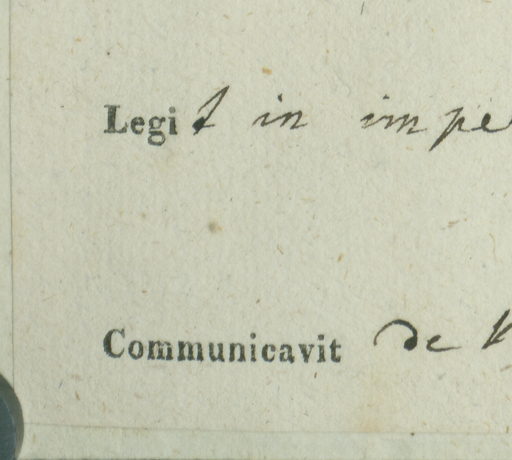 Legit in impe
Communicavit de